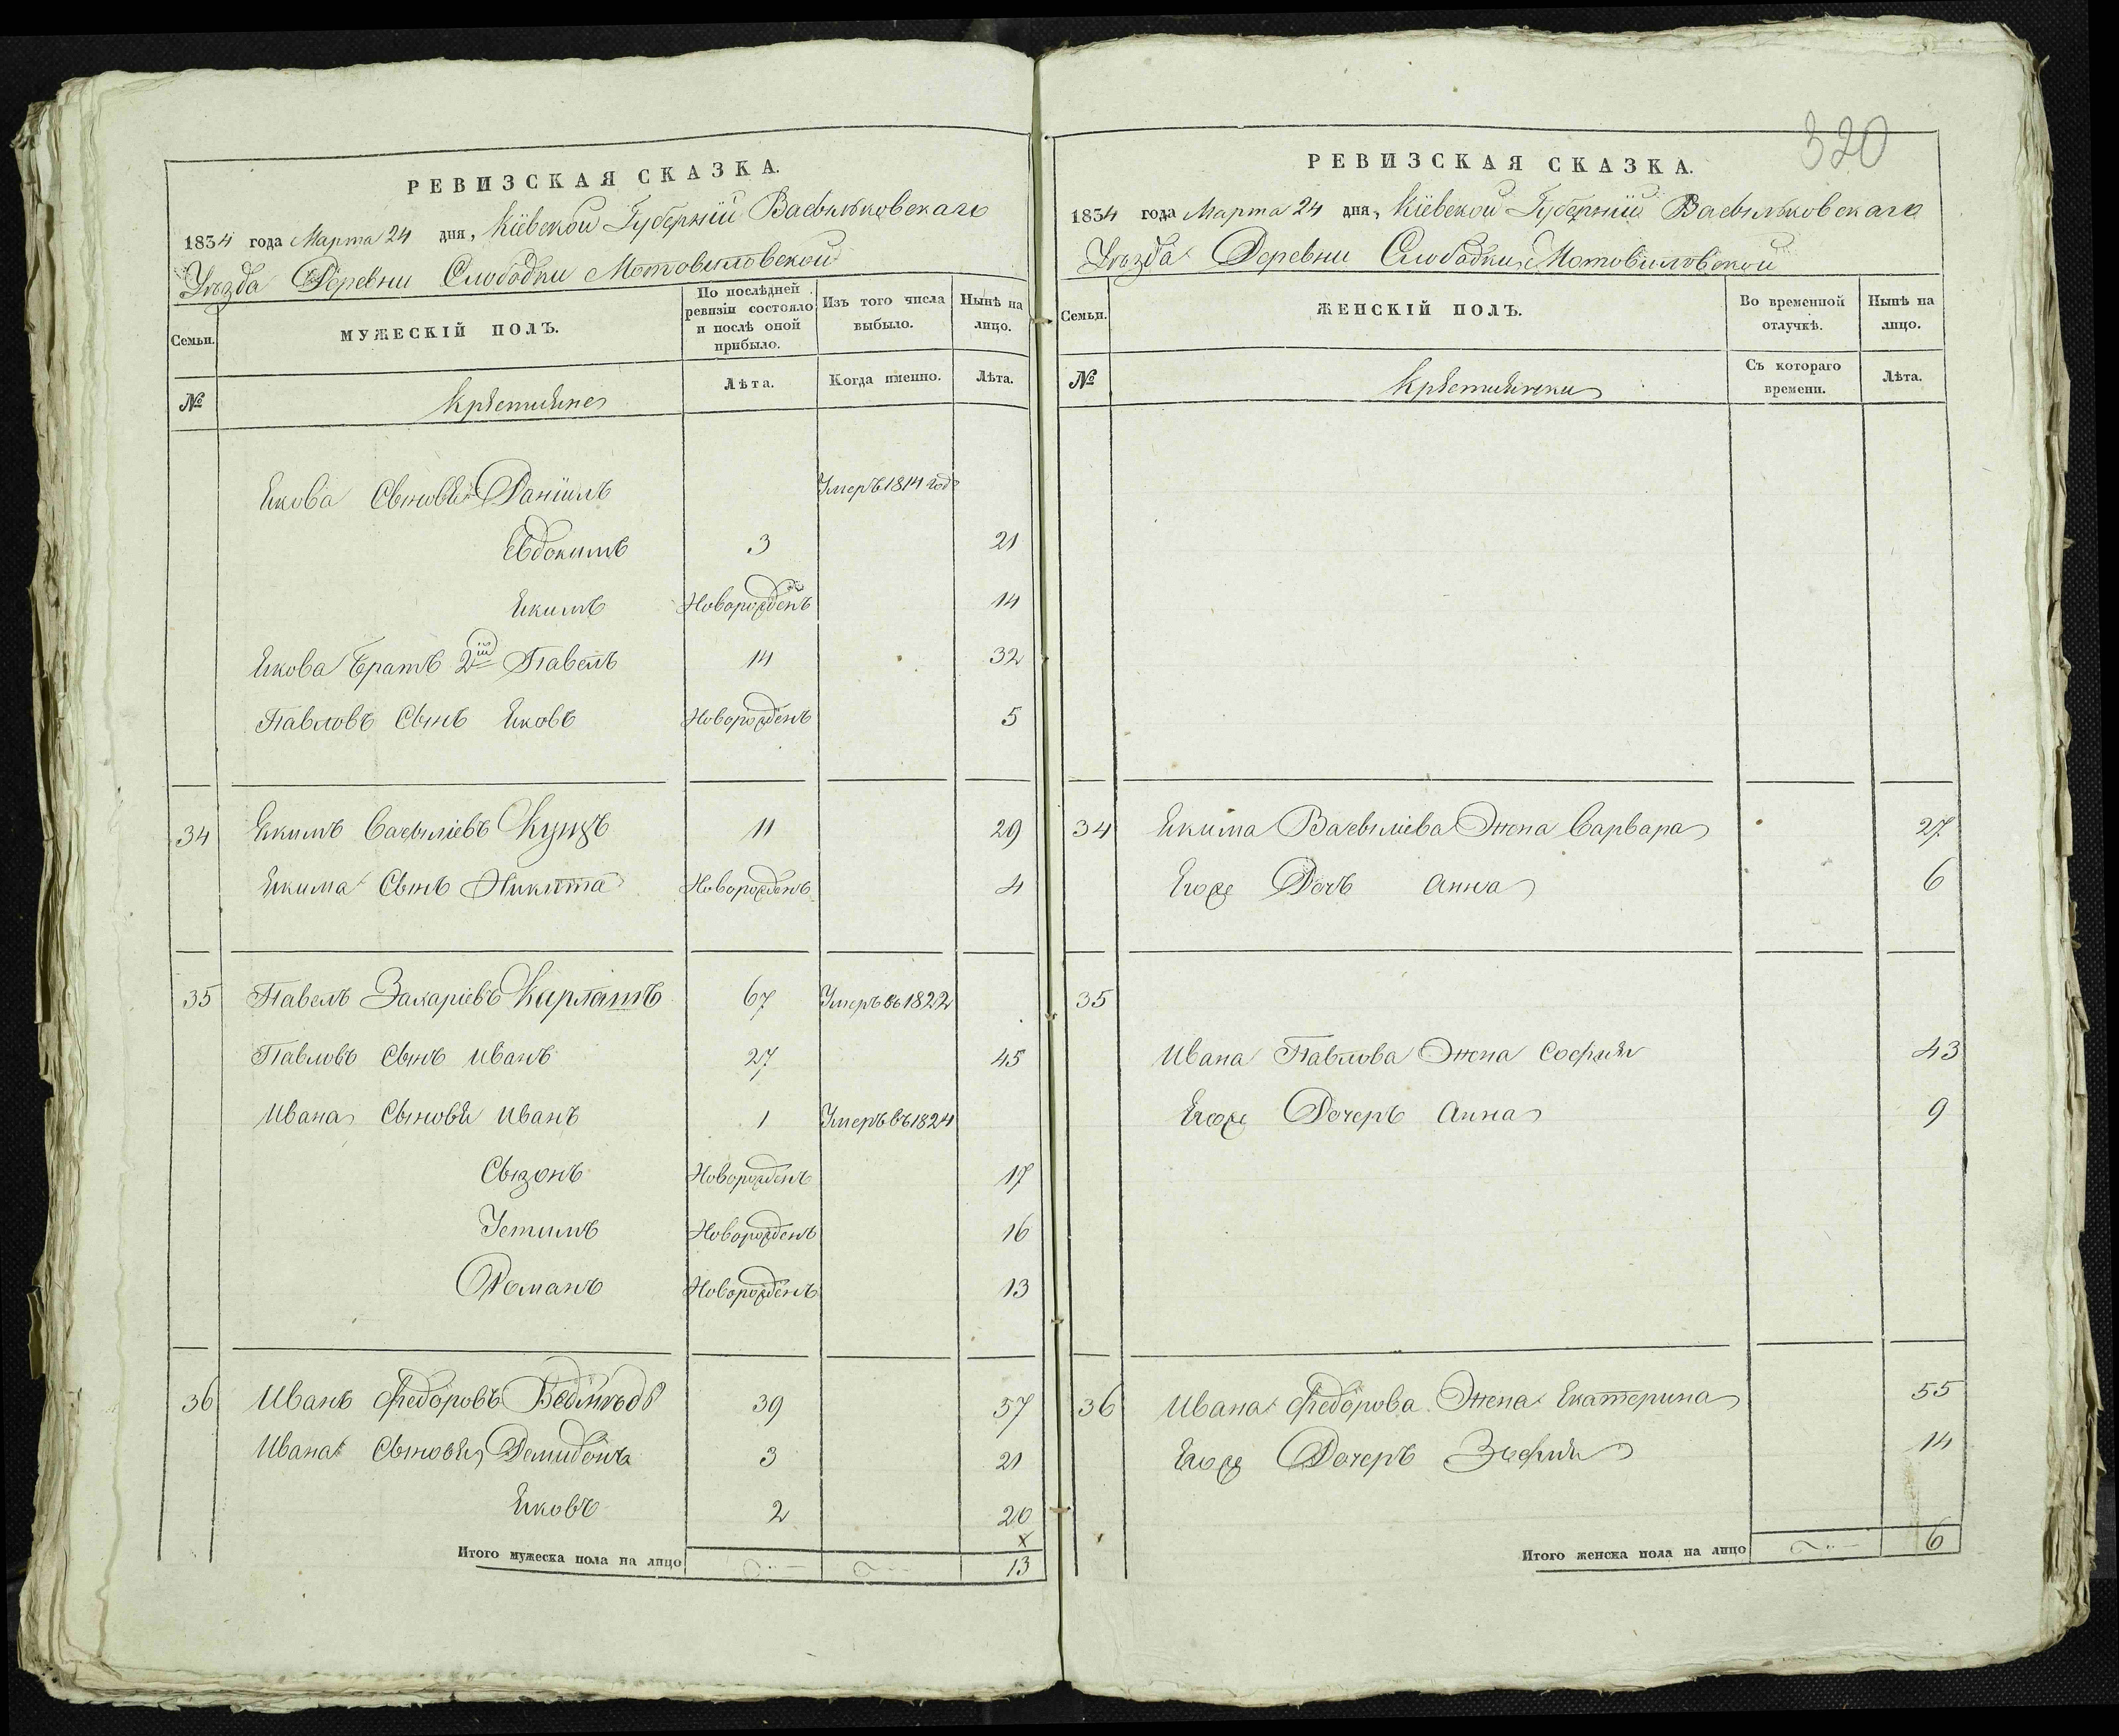 320
РЕВИЗСКАЯ СКАЗКА.
1834 года Марта 24 дня, Кіевской Губерніи Васыльковскаго
Уезда Деревни Слободки Мотовиловской
Семьи.
МУЖЕСКІЙ ПОЛЪ.
По послѣдней ревизіи состояло и послѣ оной прибыло.
Изъ того числа выбыло.
Нынѣ на лицо.
№
Крестьяне
Лѣта.
Когда именно.
Лѣта.
Якова Сыновья Даніилъ Умеръ 1814 года
Евдокимъ 3 21
Якимъ Новорожденъ 14
Якова Братъ 2й Павелъ 14 32
Павловъ Сынъ Яковъ Новорожденъ 5
34 Якимъ Васыліевъ Куцъ 11 29
Якима Сынъ Никита Новорожденъ 4
35 Павелъ Захаріевъ 67 Умеръ въ 1822
Павловъ Сынъ Иванъ 27 45
Ивана Сыновья Иванъ 1 Умеръ въ 1824
Сызонъ Новорожденъ 17
Устимъ Новорожденъ 16
Романъ Новорожденъ 13
36 Иванъ Федоровъ 39 57
Ивана Сыновья Демидонъ 3 21
Яковъ 2 20
Итого мужеска пола на лицо 13
РЕВИЗСКАЯ СКАЗКА.
1834 года Марта 24 дня, Кіевской Губерніи Васыльковскаго
Уезда Деревни Слободки Мотовиловской
Семьи.
ЖЕНСКІЙ ПОЛЪ.
Во временной отлучкѣ.
Нынѣ на лицо.
№
Крестьянки
Съ котораго времени.
Лѣта.
34 Якима Васыліева Жена Варвара 27
Егоже Дочь Анна 6
35
Ивана Павлова Жена София 43
Егоже Дочеръ Анна 9
36 Ивана Федорова Жена Екатерина 55
Егоже Дочеръ Зофия 14
Итого женска пола на лицо 6